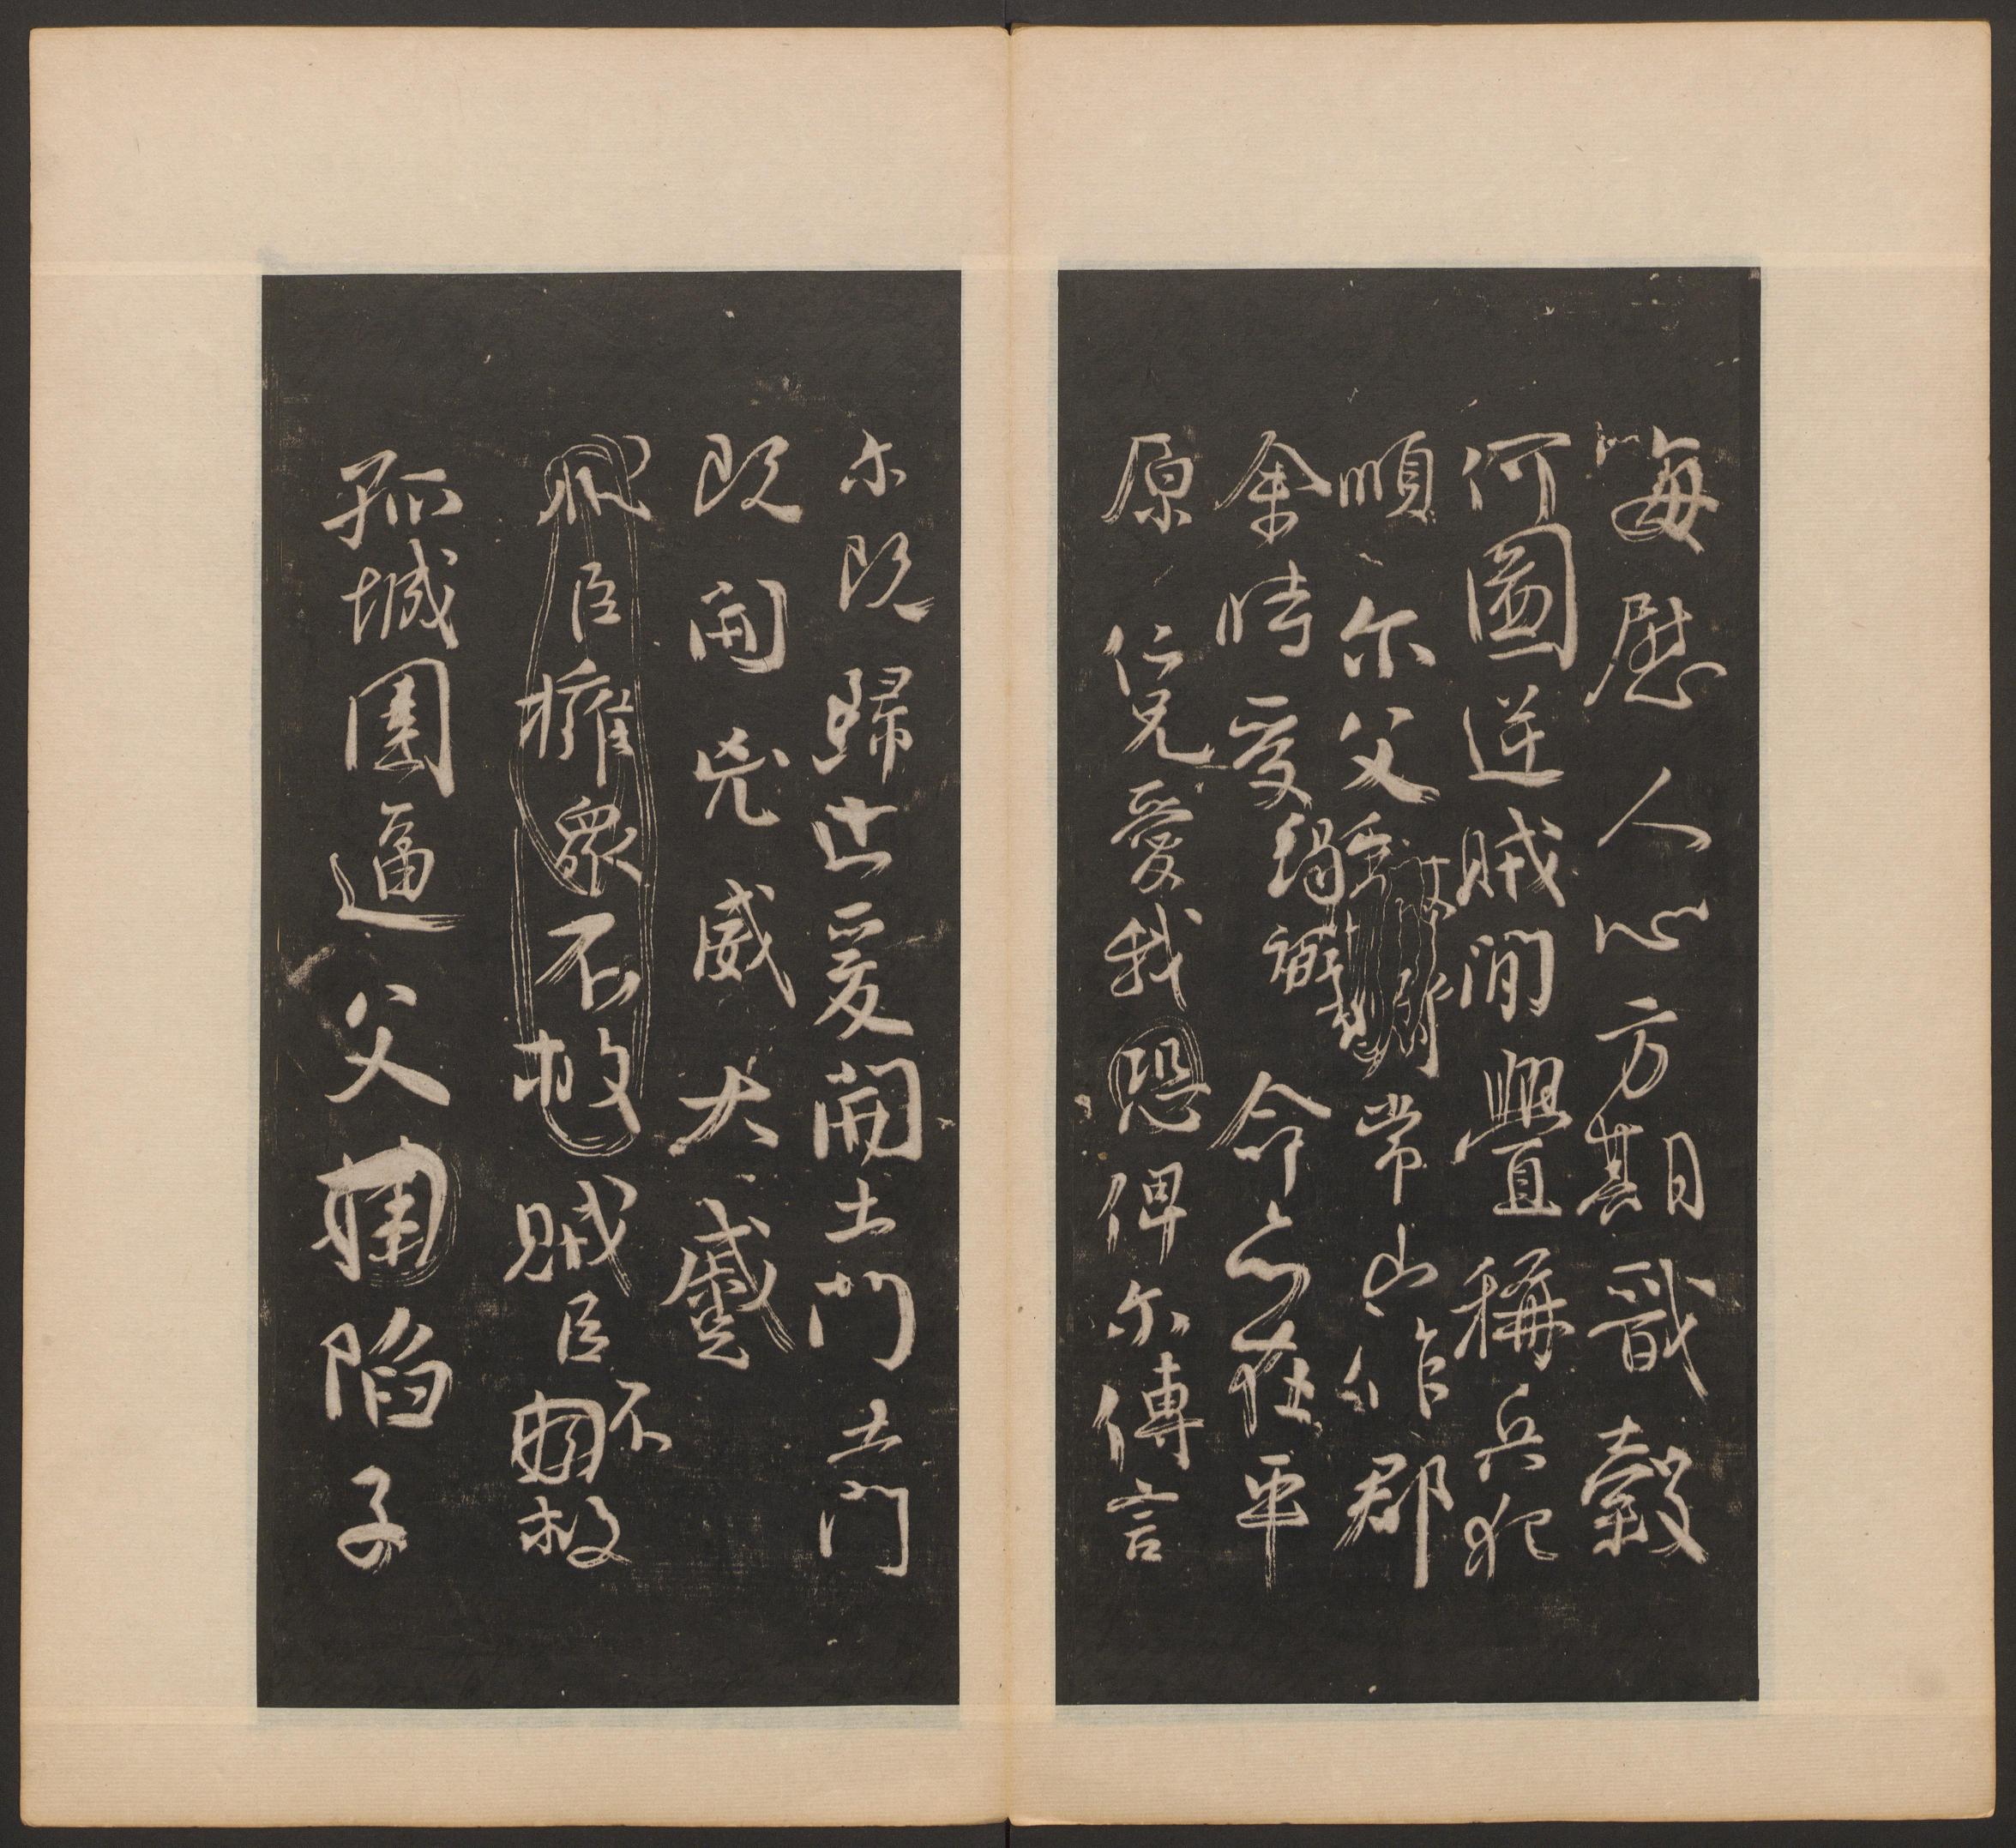 每慰人心方期戩穀
何圖逆賊間釁稱兵犯
順尓父竭誠常山作郡
余時受命亦在平
原仁兄愛我恐俾尓傳言
尓既歸止爰開土門土門
既開兇威大蹙
臣擁衆不救賊臣不救
孤城圍逼父陷子